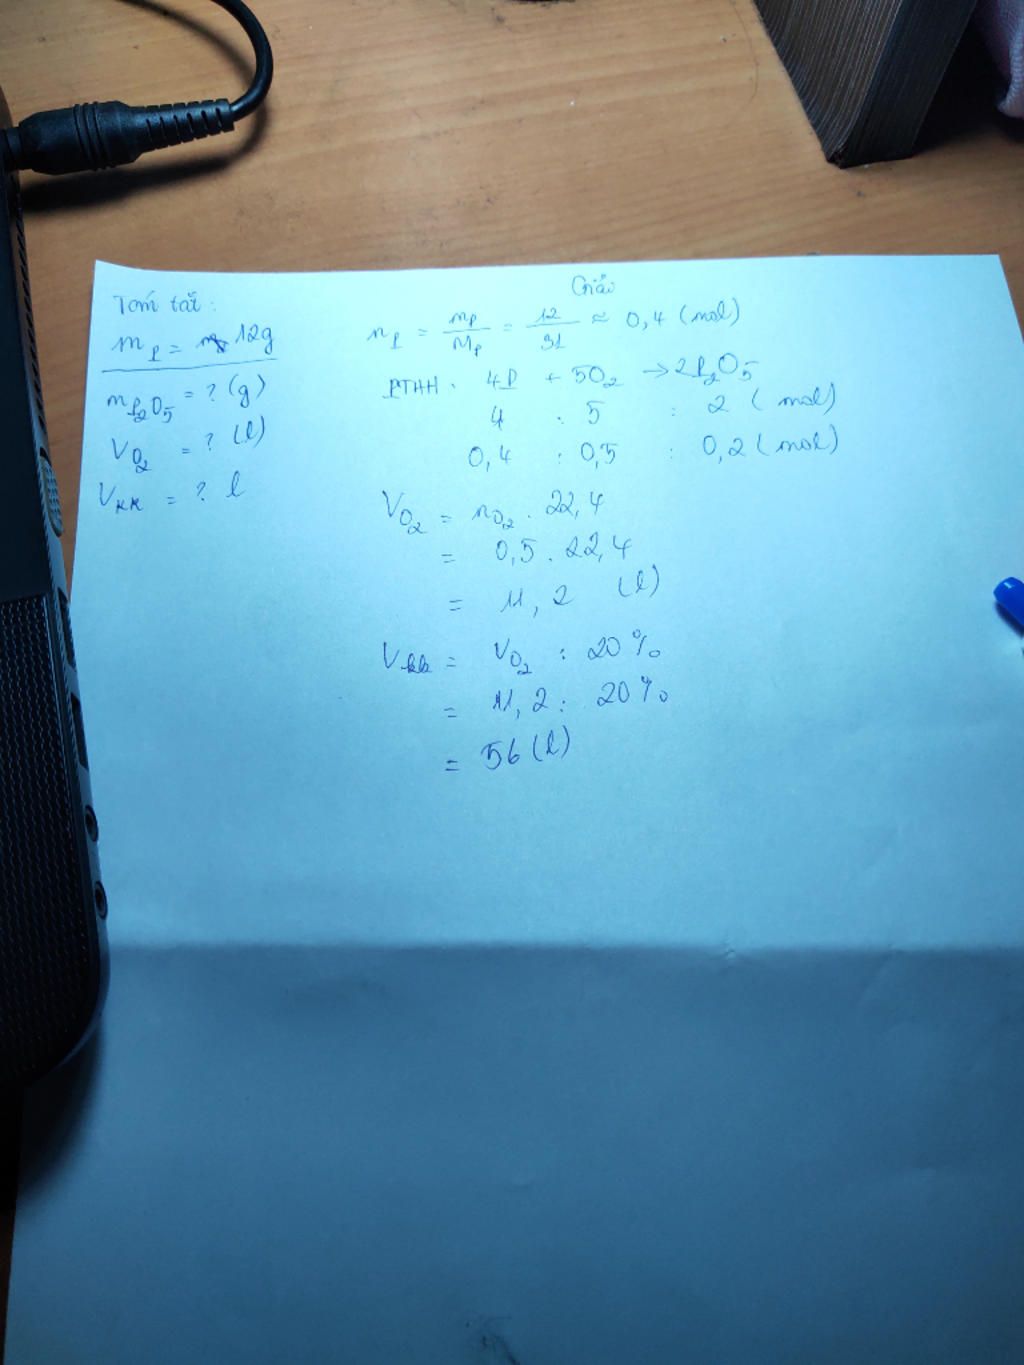 Tóm tắt:
m P = 12g
m P2O5 = ? (g)
V O2 = ? (l)
V KK = ? l
Giải
n P = mP / MP = 12 / 31 ≈ 0,4 (mol)
PTHH. 4P + 5O2 → 2P2O5
4 : 5 : 2 (mol)
0,4 : 0,5 : 0,2 (mol)
VO2 = nO2 . 22,4
= 0,5 . 22,4
= 11,2 (l)
Vkk = VO2 : 20%
= 11,2 : 20%
= 56 (l)